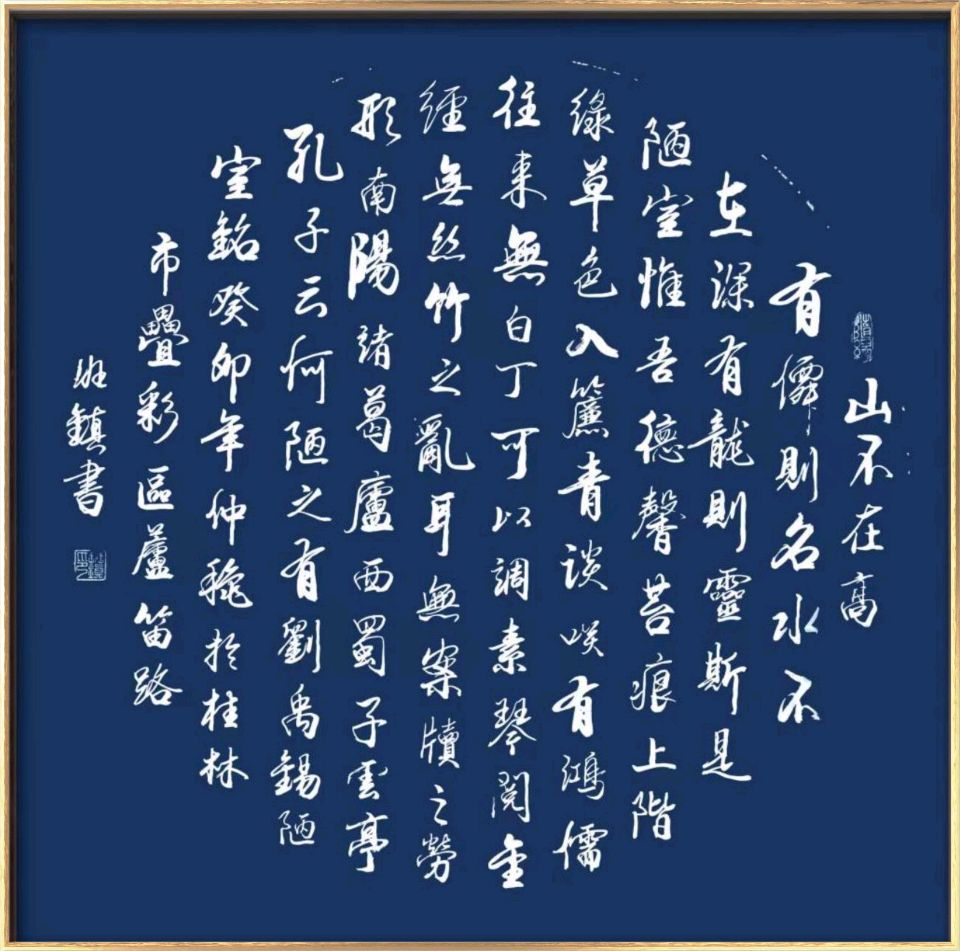 山不在高
有僊則名水不
在深有龍則靈斯是
陋室惟吾德馨苔痕上階
綠草色入簾青談咲有鴻儒
往來無白丁可以調素琴閱金
經無絲竹之亂耳無案牘之勞
形南陽諸葛廬西蜀子雲亭
孔子云何陋之有劉禹錫陋
室銘癸卯年仲穐於桂林
市疊彩區蘆笛路
鎮書